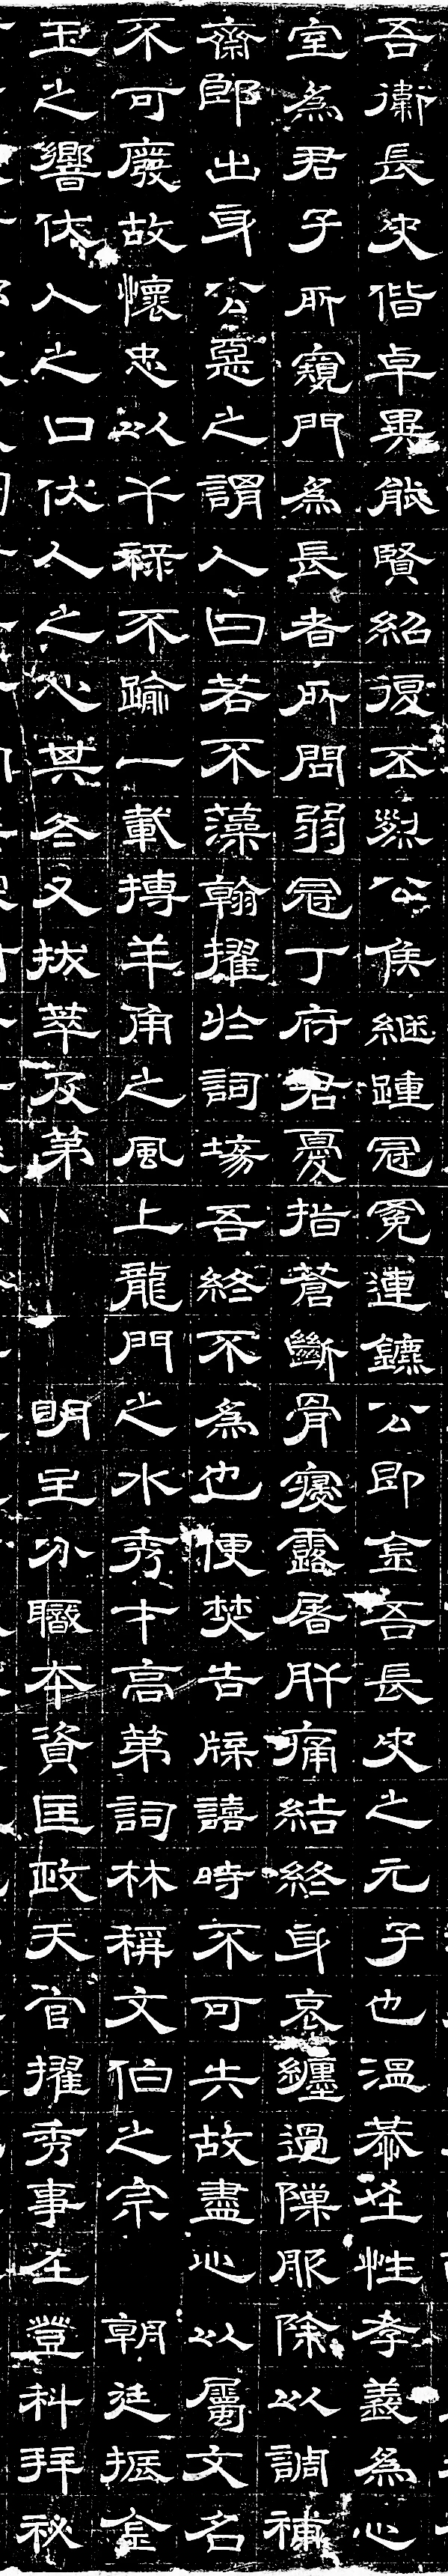 吾衛長史偕卓異能賢紹復丕烈公侯繼踵冠冕連鑣公即金吾長史之元子也溫恭在性孝義為心
室為君子所窺門為長者所問弱冠丁府君憂指蒼斷骨寢露屠肝痛結終身哀纏過隟服除以調補
齋郎出身公惡之謂人曰若不藻翰擢於詞場吾終不為也便焚告牒譆時不可失故盡心以屬文名
不可廢故懷忠以干祿不踰一載摶羊角之風上龍門之水秀才高第詞林稱文伯之宗朝廷振金
玉之響伏人之口伏人之心其冬又拔萃及第明主分職本資匡政天官擢秀事在登科拜祕